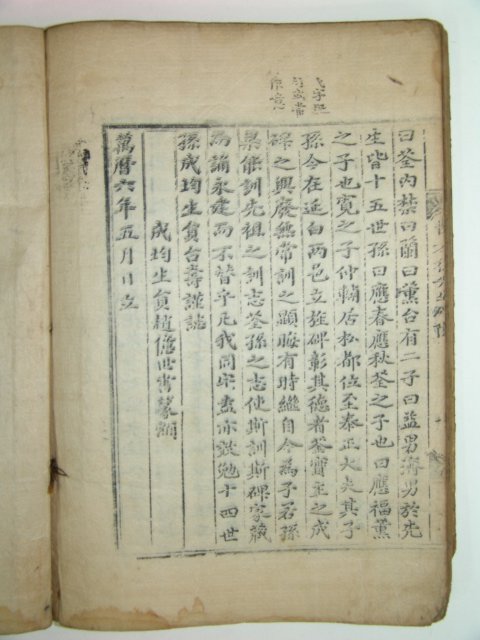 曰荃內禁曰蘭曰薰台有二子曰益男濟男於先
生皆十五世孫曰應春應秋荃之子也曰應福薰
之子也寬之子仲輔居松都位至泰正大夫其子
孫今在延白兩邑立旌碑彰其德者荃寶主之成
碑之興廢無常訓之顯晦有時繼自今為子若孫
果能訓先祖之訓志荃孫之志使斯訓斯碑家藏
而誦永建而不替乎凡我同宗盍亦敦勉十四世
孫成均生貟台壽謹誌
成均生貟趙 世書篆額
萬曆六年五月日立